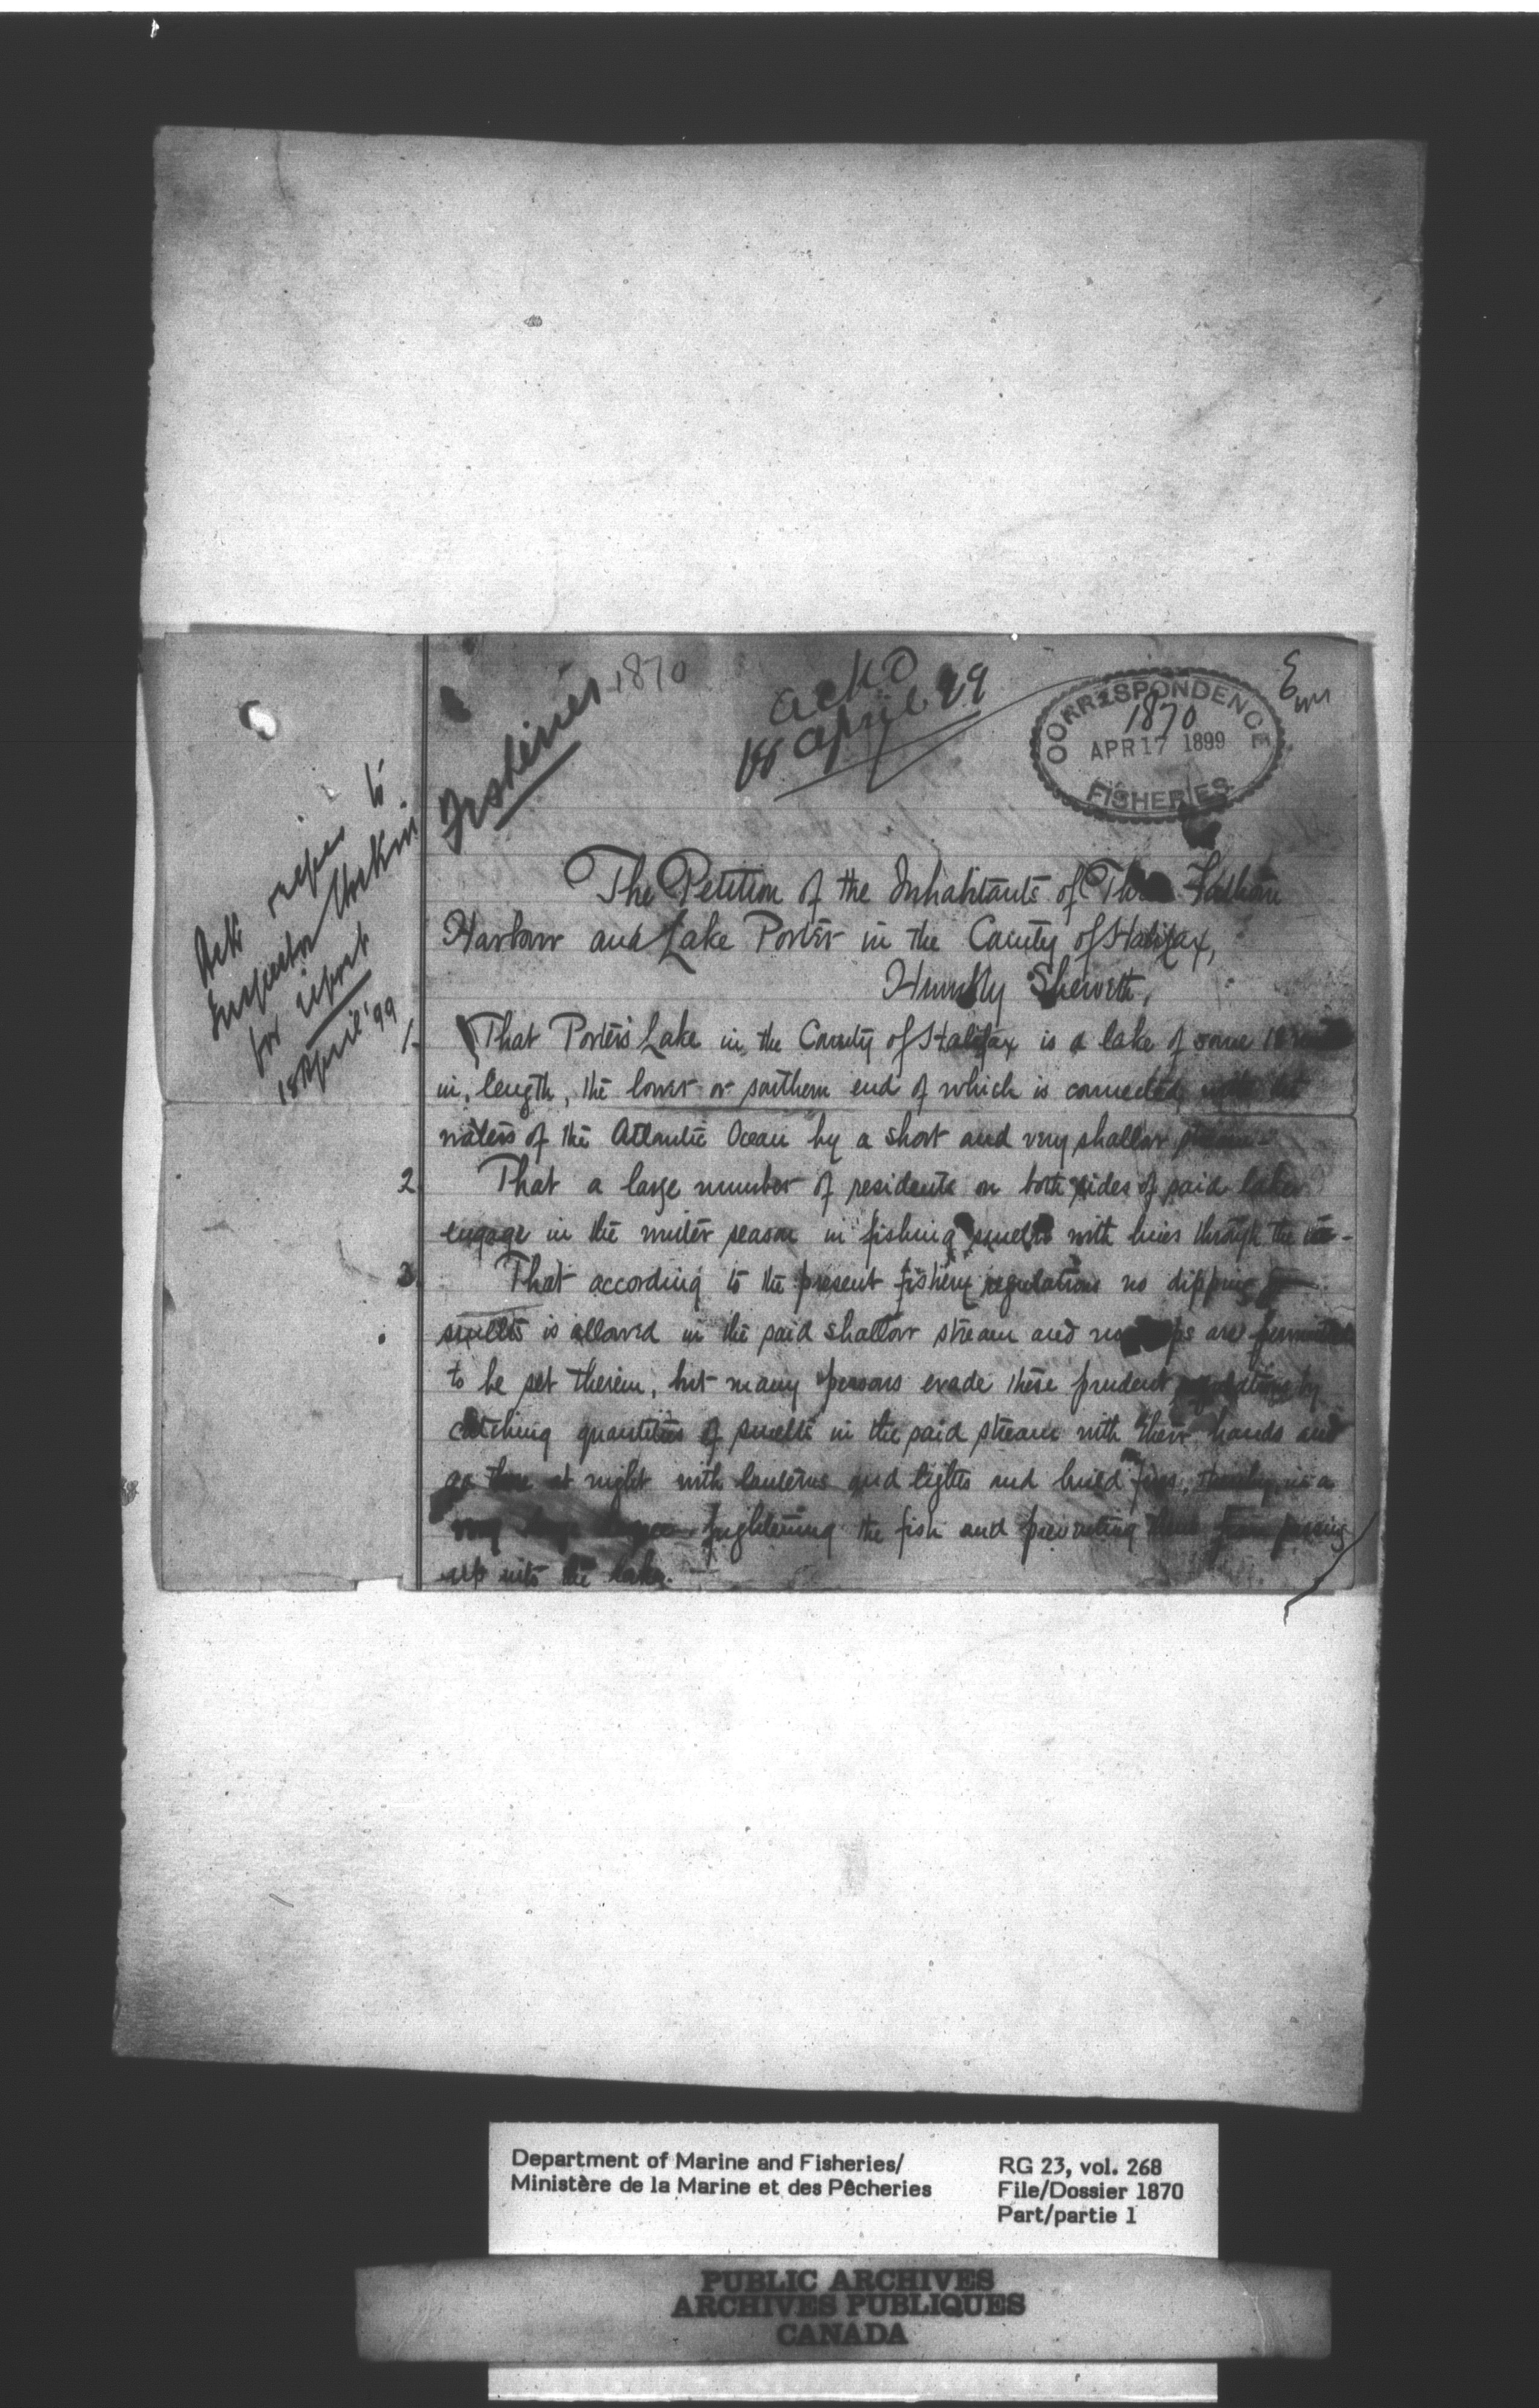 Fisheries
1870
ackd
18 April 99
Em
CORRESPONDENCE
1870
APR 17 1899
FISHERIES
Ack refer to
Inspector Hockin
for report
18 April '99
The Petition of the Inhabitants of Three Fathom
Harbour and Lake Porter in the County of Halifax,
Humbly Sheweth,
1. That Porter's Lake in the County of Halifax is a lake of some 18 miles
in length, the lower or southern end of which is connected with the
waters of the Atlantic Ocean by a short and very shallow stream.
2. That a large number of residents on both sides of said lake
engage in the winter season in fishing smelts with lines through the ice-
3. That according to the present fishery regulations no dipping of
smelts is allowed in the said shallow stream and no are permitted
to be set therein, but many persons evade these prudent regulations by
catching quantities of smelts in the said stream with their hands and
go there at night with lanterns and lights and build fires, thereby in a
very large degree frightening the fish and preventing them from passing
up into the lake.
Department of Marine and Fisheries/
Ministère de la Marine et des Pêcheries
RG 23, vol. 268
File/Dossier 1870
Part/partie 1
PUBLIC ARCHIVES
ARCHIVES PUBLIQUES
CANADA